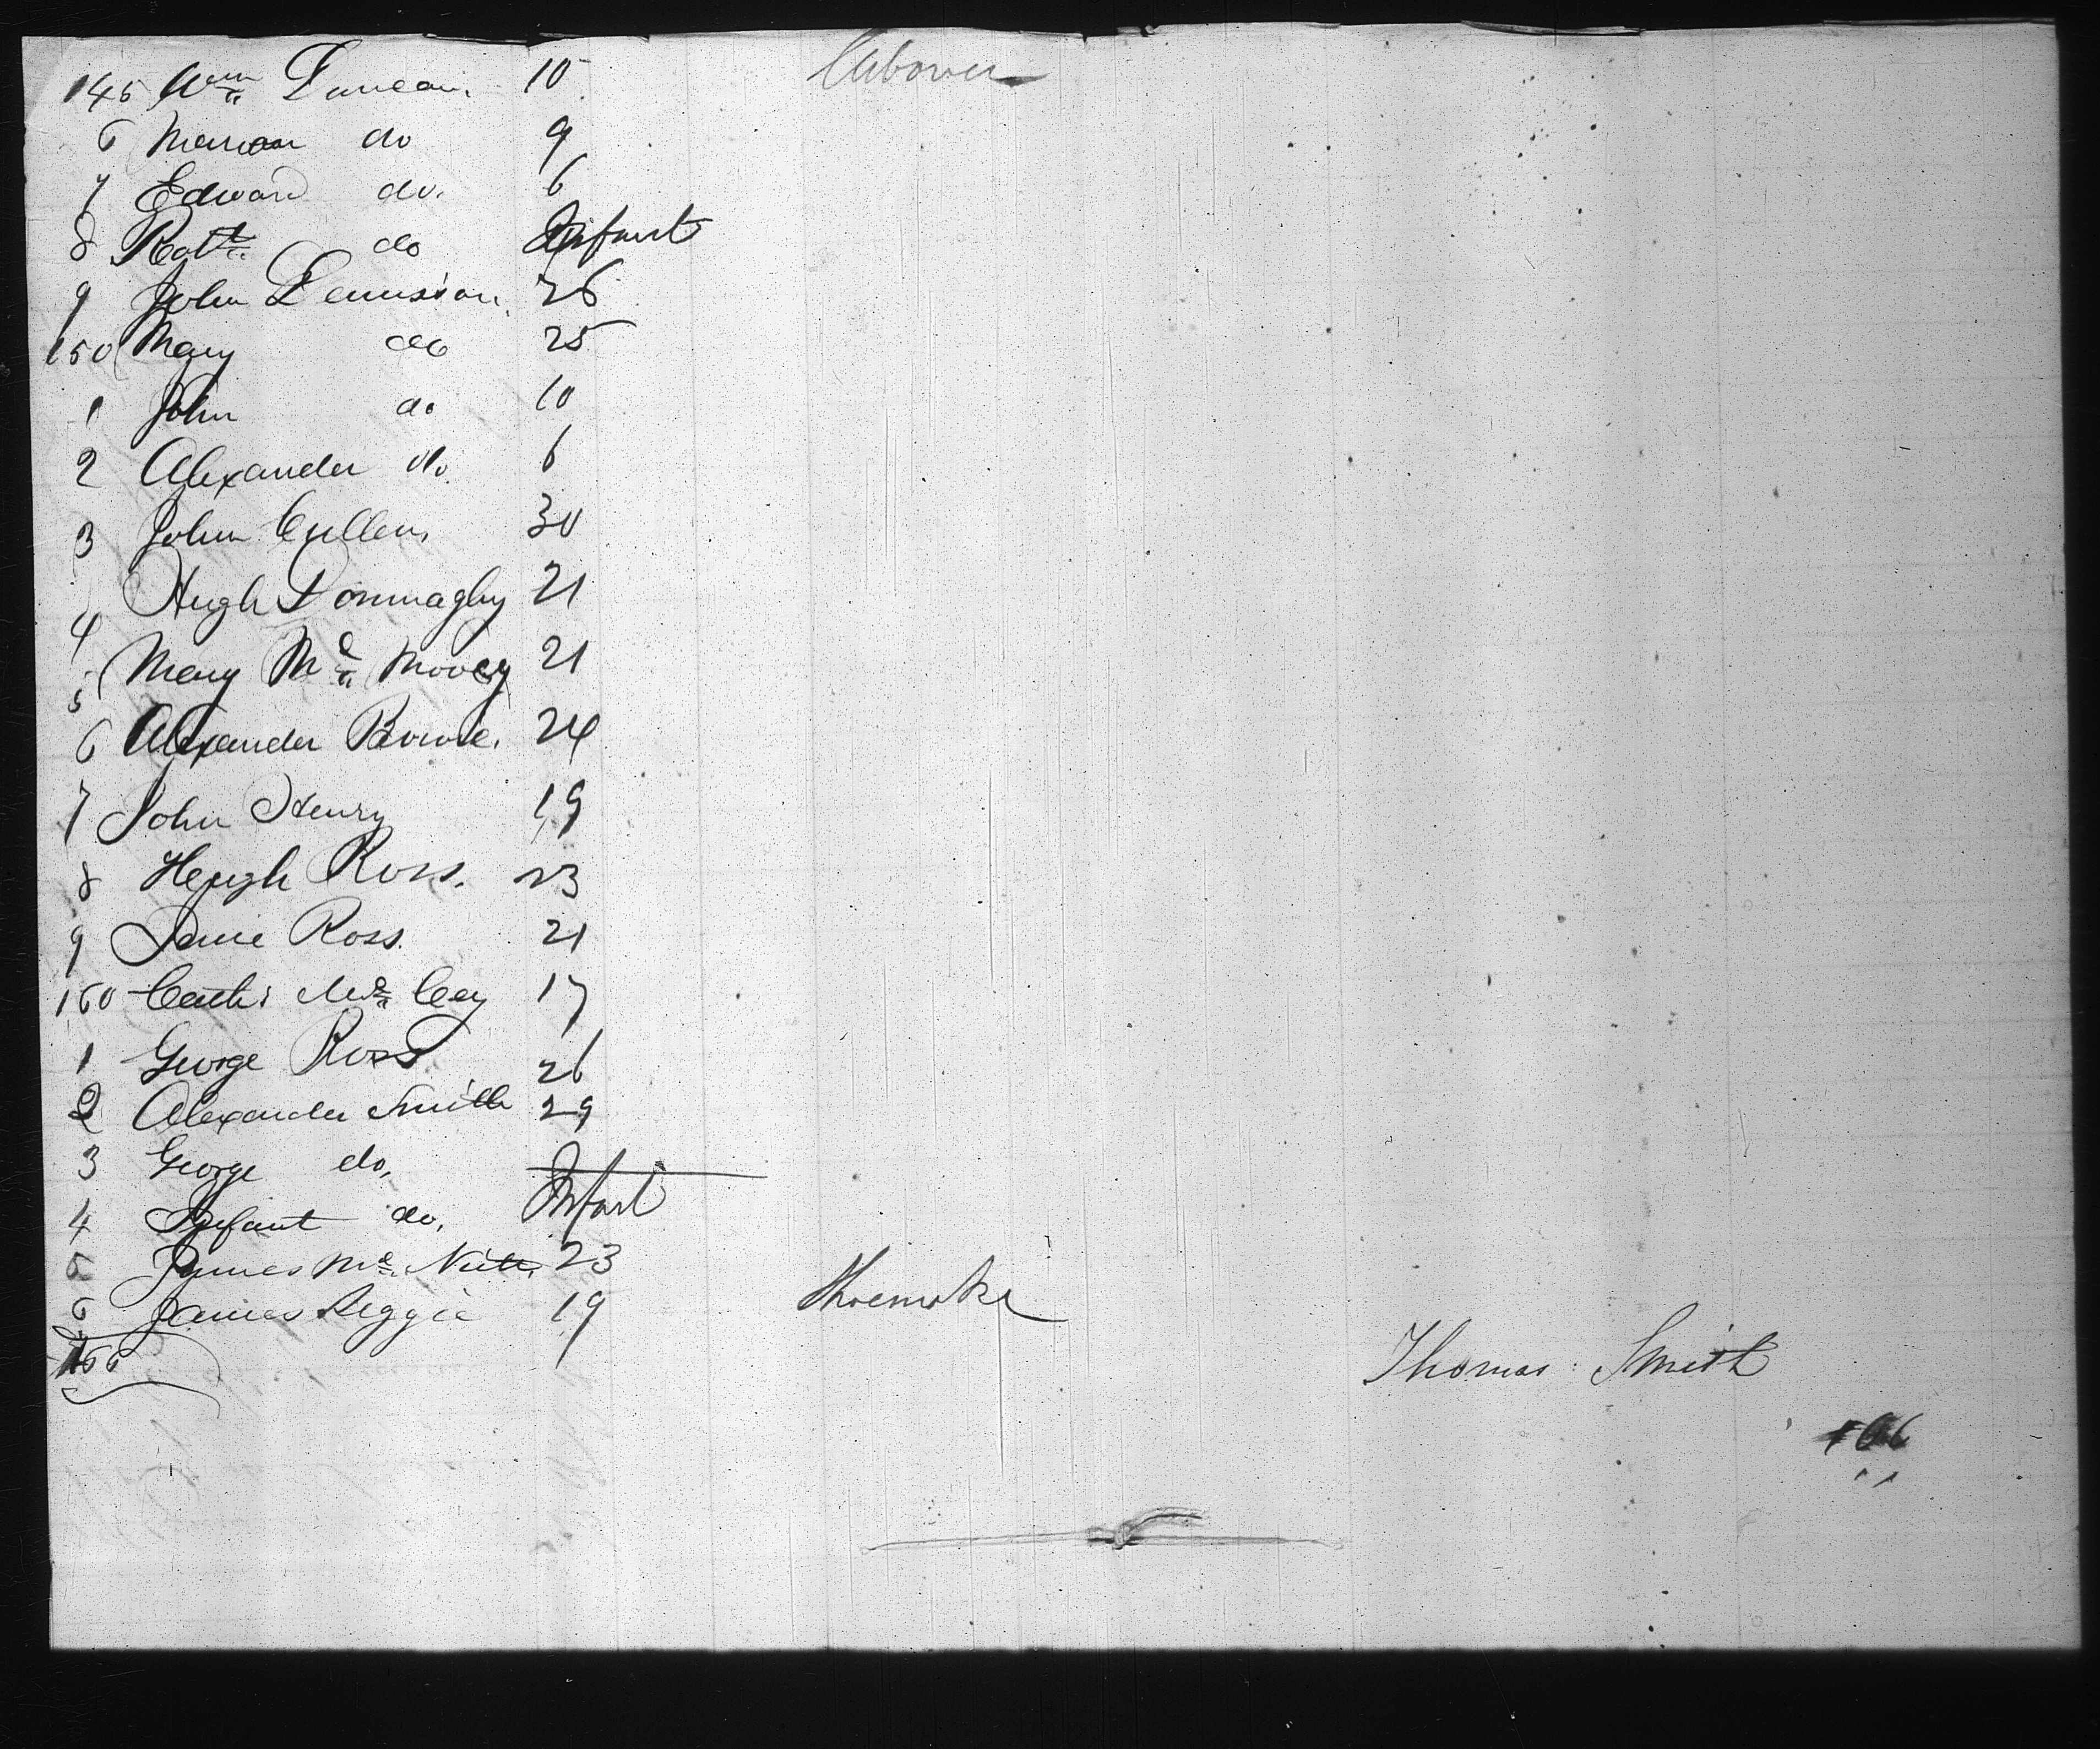 145 Wm Duncan. 10 Labourer
6 Marian do 9
7 Edward do. 6
8 Robt do Infant
9 John Dennison. 26
150 Mary do 25
1 John do 10
2 Alexander do. 6
3 John Cullen. 30
4 Hugh Donnaghy 21
5 Mary Mc Moory 21
6 Alexander Bowie. 24
7 John Henry 19
8 Heugh Ross. 23
9 Jane Ross. 21
160 Cath: Mc Coy 17
1 George Ross 26
2 Alexander Smith 29
3 George do,
4 Infant do, Infant
5 James Mc Nutt. 23
6 James Reggie 19 Shoemaker
166
Thomas Smith
166